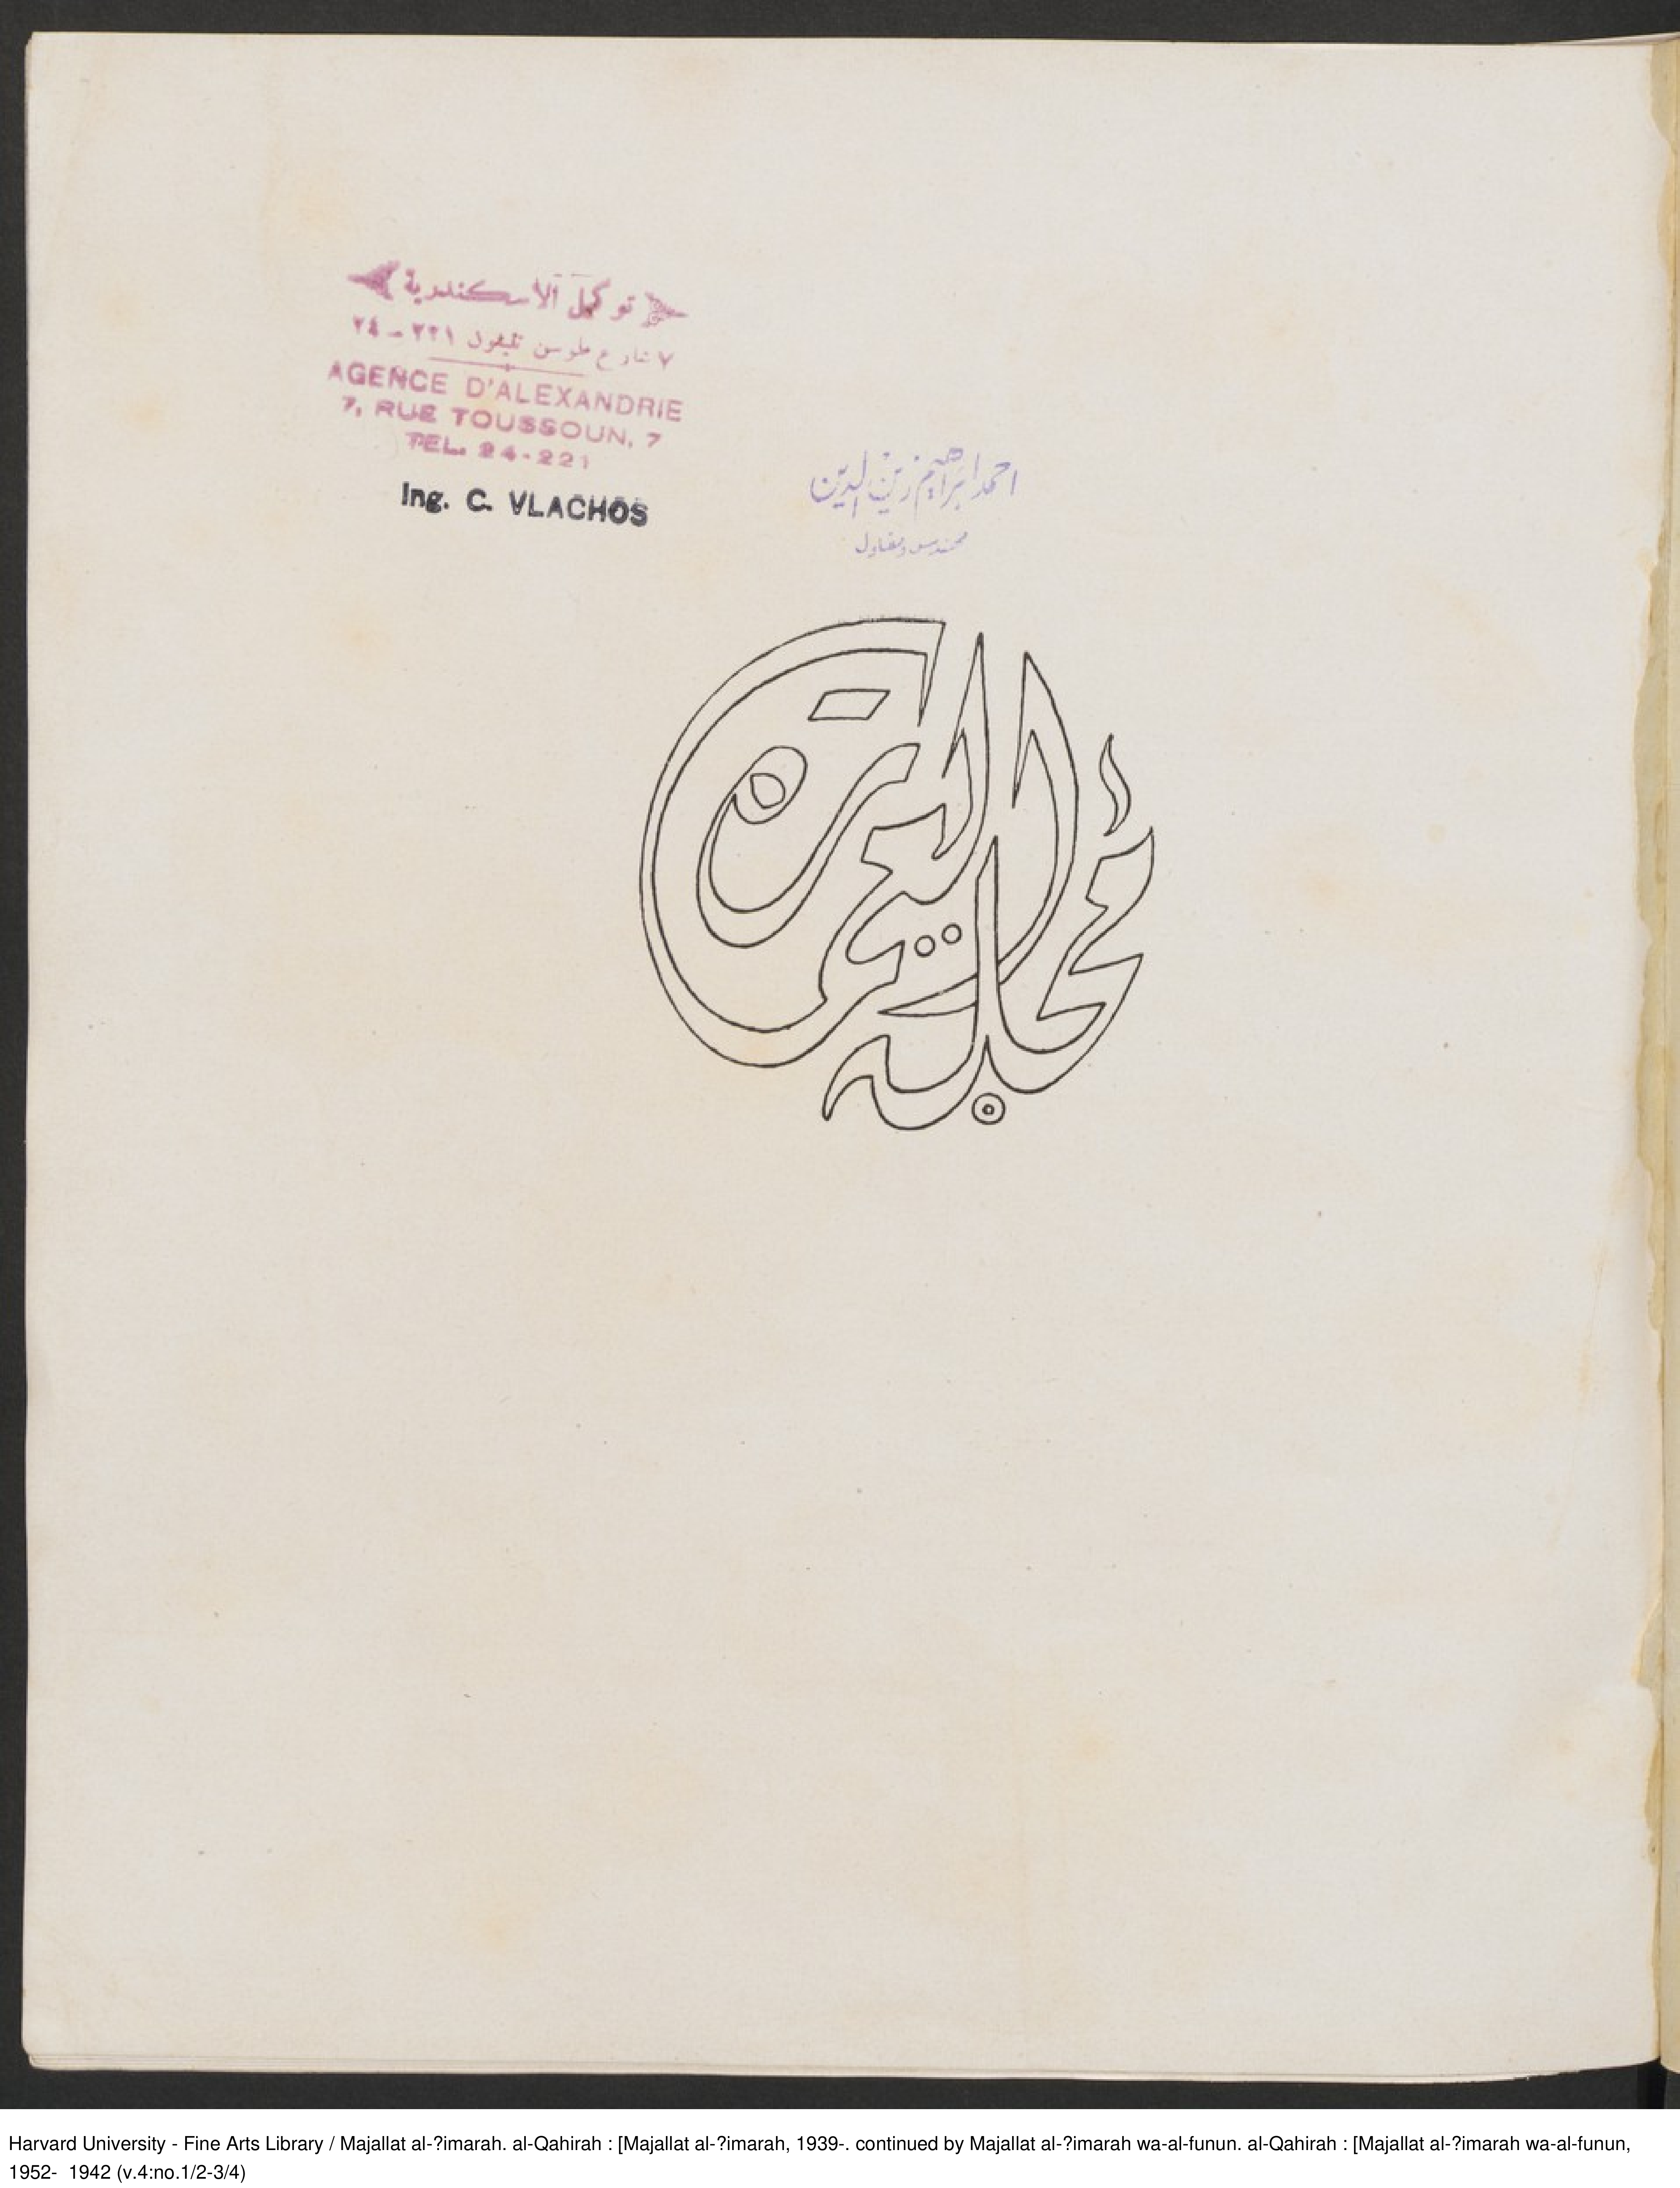 توكيل الاسكندرية
٧ شارع طوسن تليفون ٢٢١ - ٢٤
AGENCE D'ALEXANDRIE
7, RUE TOUSSOUN, 7
TEL. 24-221
Ing. C. VLACHOS
احمد ابراهيم زين الدين
مهندس ومقاول
مجلة العمارة
Harvard University - Fine Arts Library / Majallat al-?imarah. al-Qahirah : [Majallat al-?imarah, 1939-. continued by Majallat al-?imarah wa-al-funun. al-Qahirah : [Majallat al-?imarah wa-al-funun,
1952- 1942 (v.4:no.1/2-3/4)